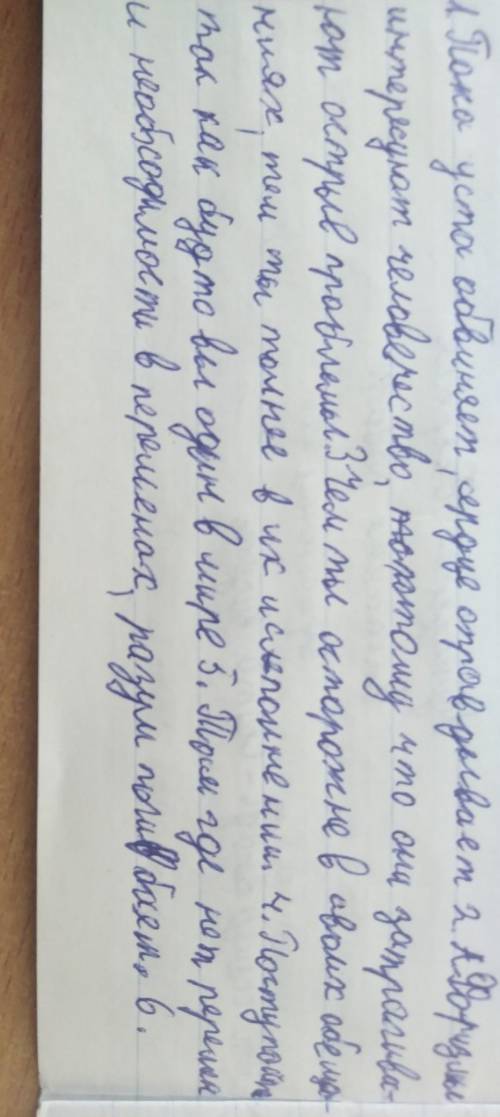 1. Пока уста обвиняет, сердце оправдывает 2. Афоризмы
интересуют человечество, потому что они затрагива-
ют острые проблемы 3 Чем ты осторожне в своих обеща-
ниях, тем ты полнее в их исполнении 4. Поступает
так как будто вы один в мире 5. Там где нет перемен
и необходимости в переменах, разум погибает. 6.